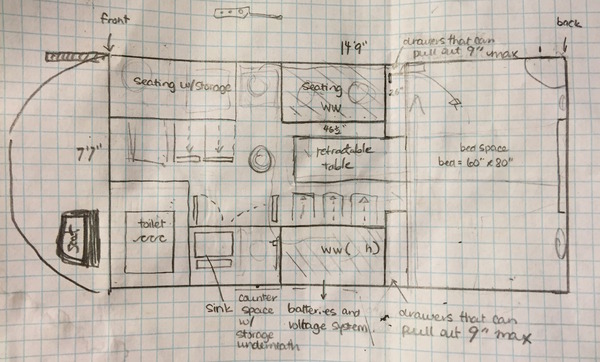 front
back
14'9"
drawers that can
pull out 9" max
seating w/storage
seating
WW
26"
46½"
7'7"
retractable
table
bed space
bed = 60" x 80"
toilet
seat
WW( h)
sink
counter
space
w/
storage
underneath
batteries and
voltage system
drawers that can
pull out 9" max